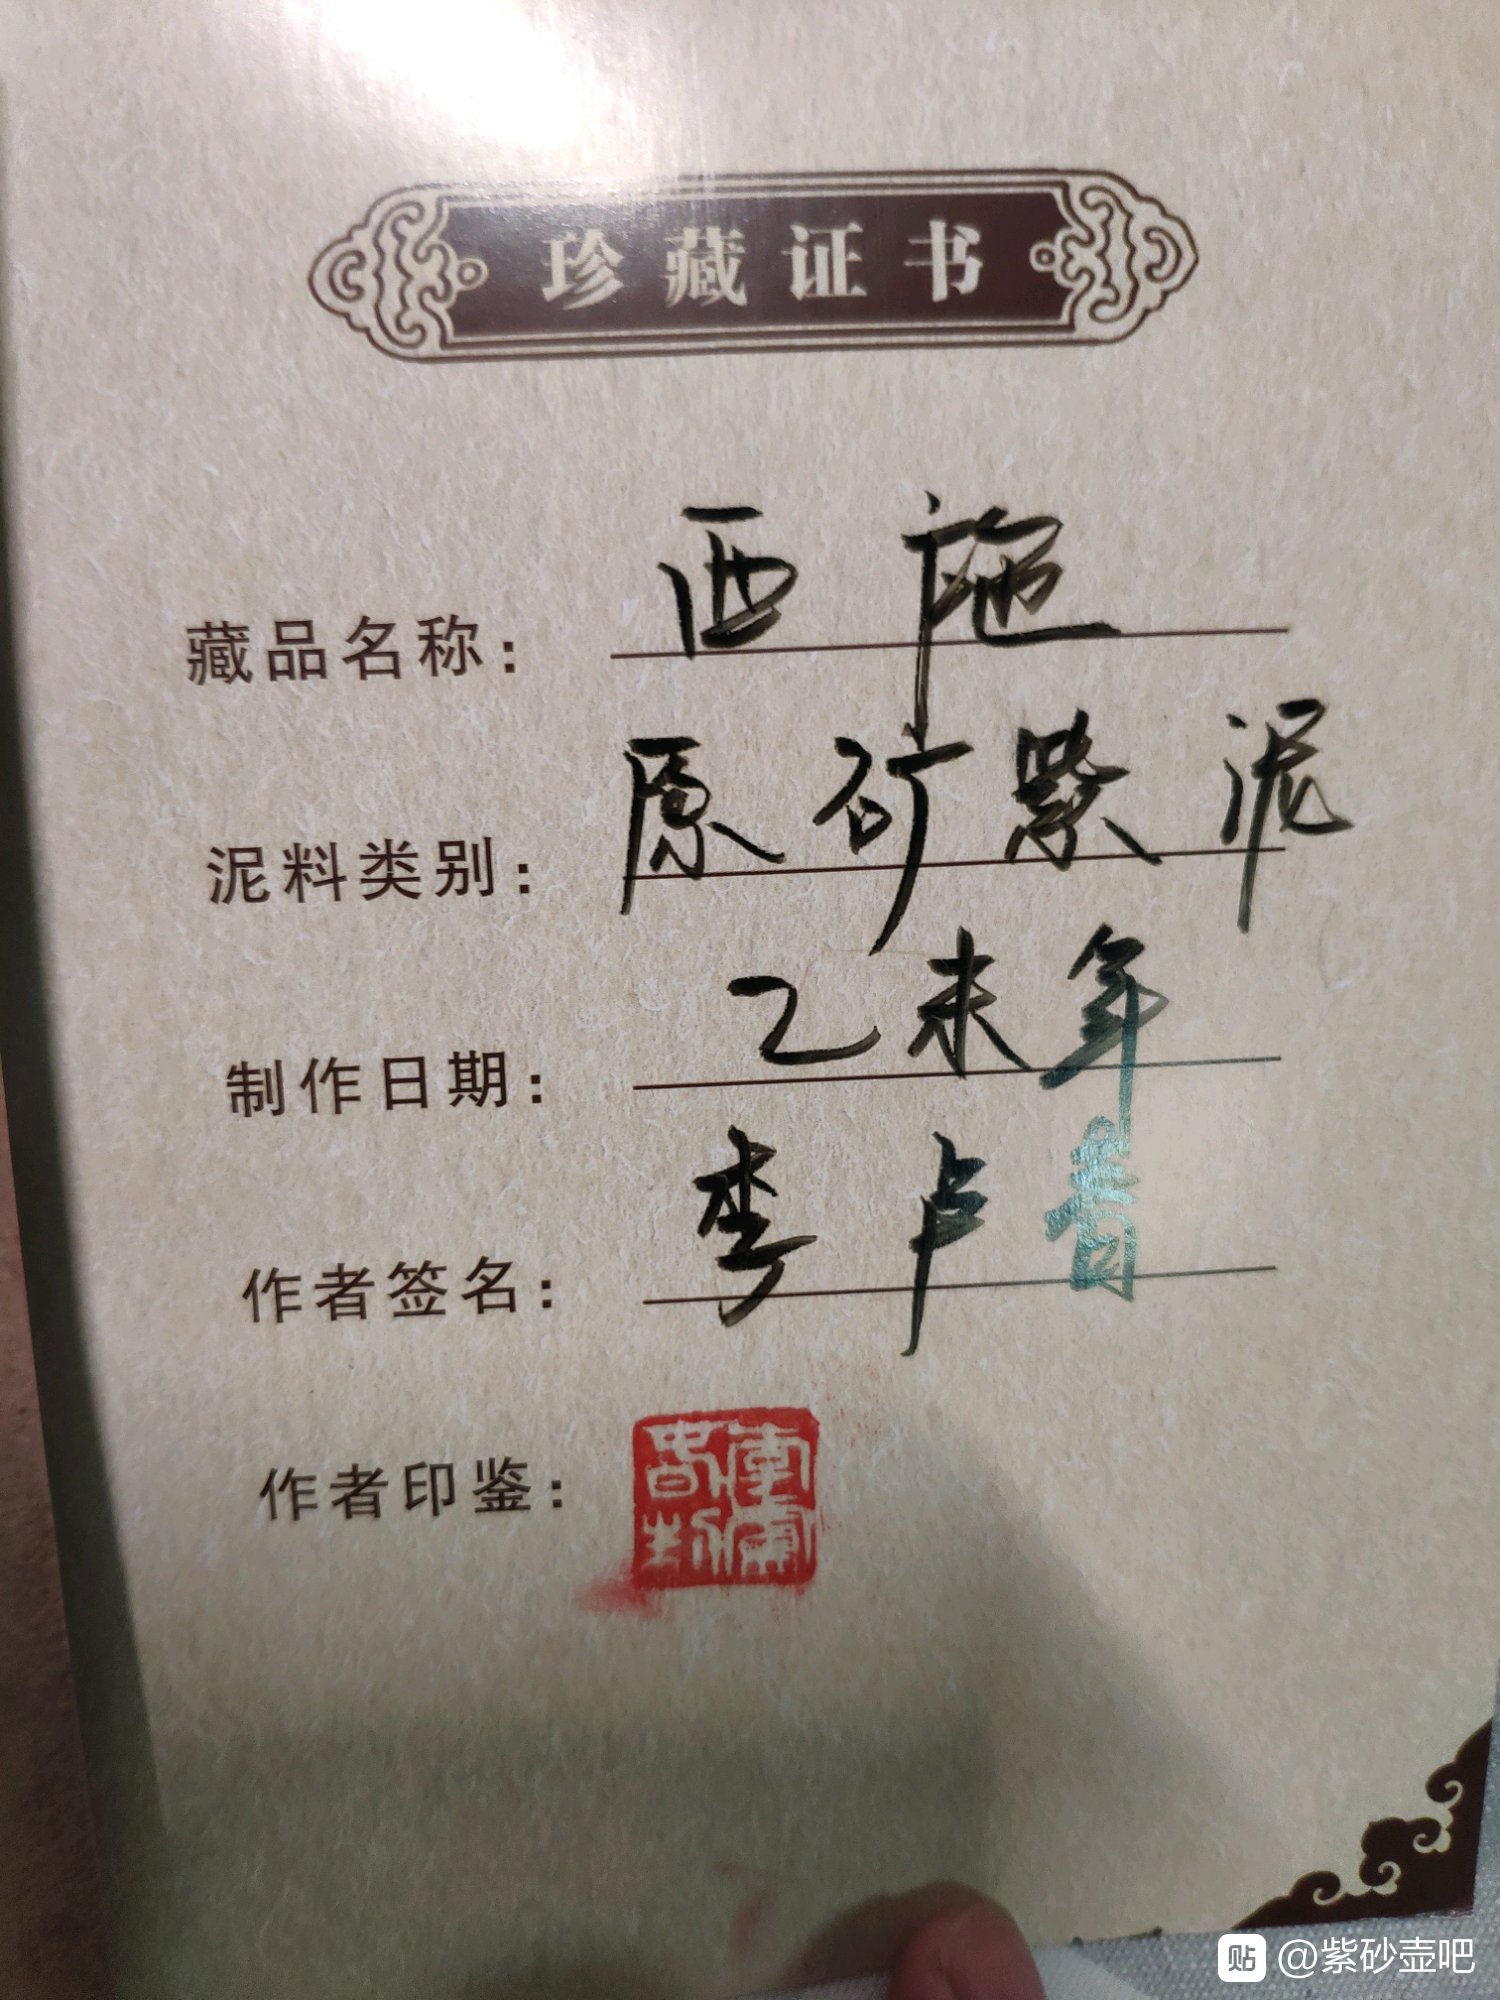 珍藏证书
藏品名称: 西施
泥料类别: 原矿紫泥
制作日期: 乙未年
作者签名: 李卢青
作者印鉴:
贴 @紫砂壶吧